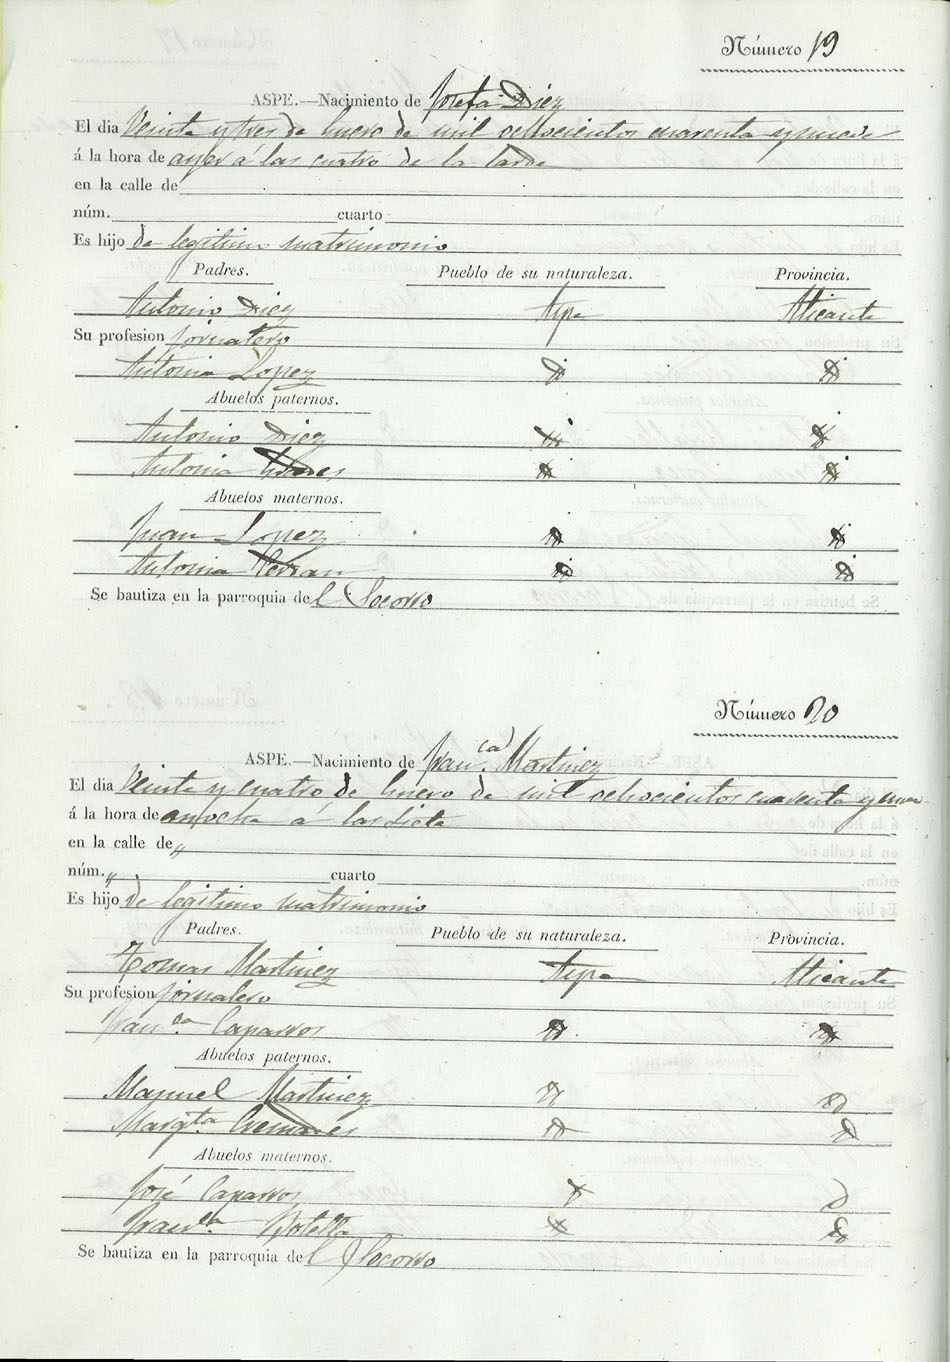 Número 19
ASPE.—Nacimiento de Josefa Diez
El dia Veinte y tres de Enero de mil ochocientos cuarenta y nueve
á la hora de ayer á las cuatro de la tarde
en la calle de
núm. cuarto
Es hijo de legitimo matrimonio
Padres. Pueblo de su naturaleza. Provincia.
Antonio Diez Aspe Alicante
Su profesion jornalero
Antonia Lopez
Abuelos paternos.
Antonio Diez
Antonia
Abuelos maternos.
Juan Lopez
Antonia
Se bautiza en la parroquia del Socorro
Número 20
ASPE.—Nacimiento de Fran.(ca) Martinez
El dia Veinte y cuatro de Enero de mil ochocientos cuarenta y nueve
á la hora de anoche á las siete
en la calle de „
núm. „ cuarto
Es hijo de legitimo matrimonio
Padres. Pueblo de su naturaleza. Provincia.
Tomas Martinez Aspe Alicante
Su profesion jornalero
Fran.ca Caparros
Abuelos paternos.
Manuel Martinez
Margta
Abuelos maternos.
José Caparros
Fran.ca Botella
Se bautiza en la parroquia del Socorro